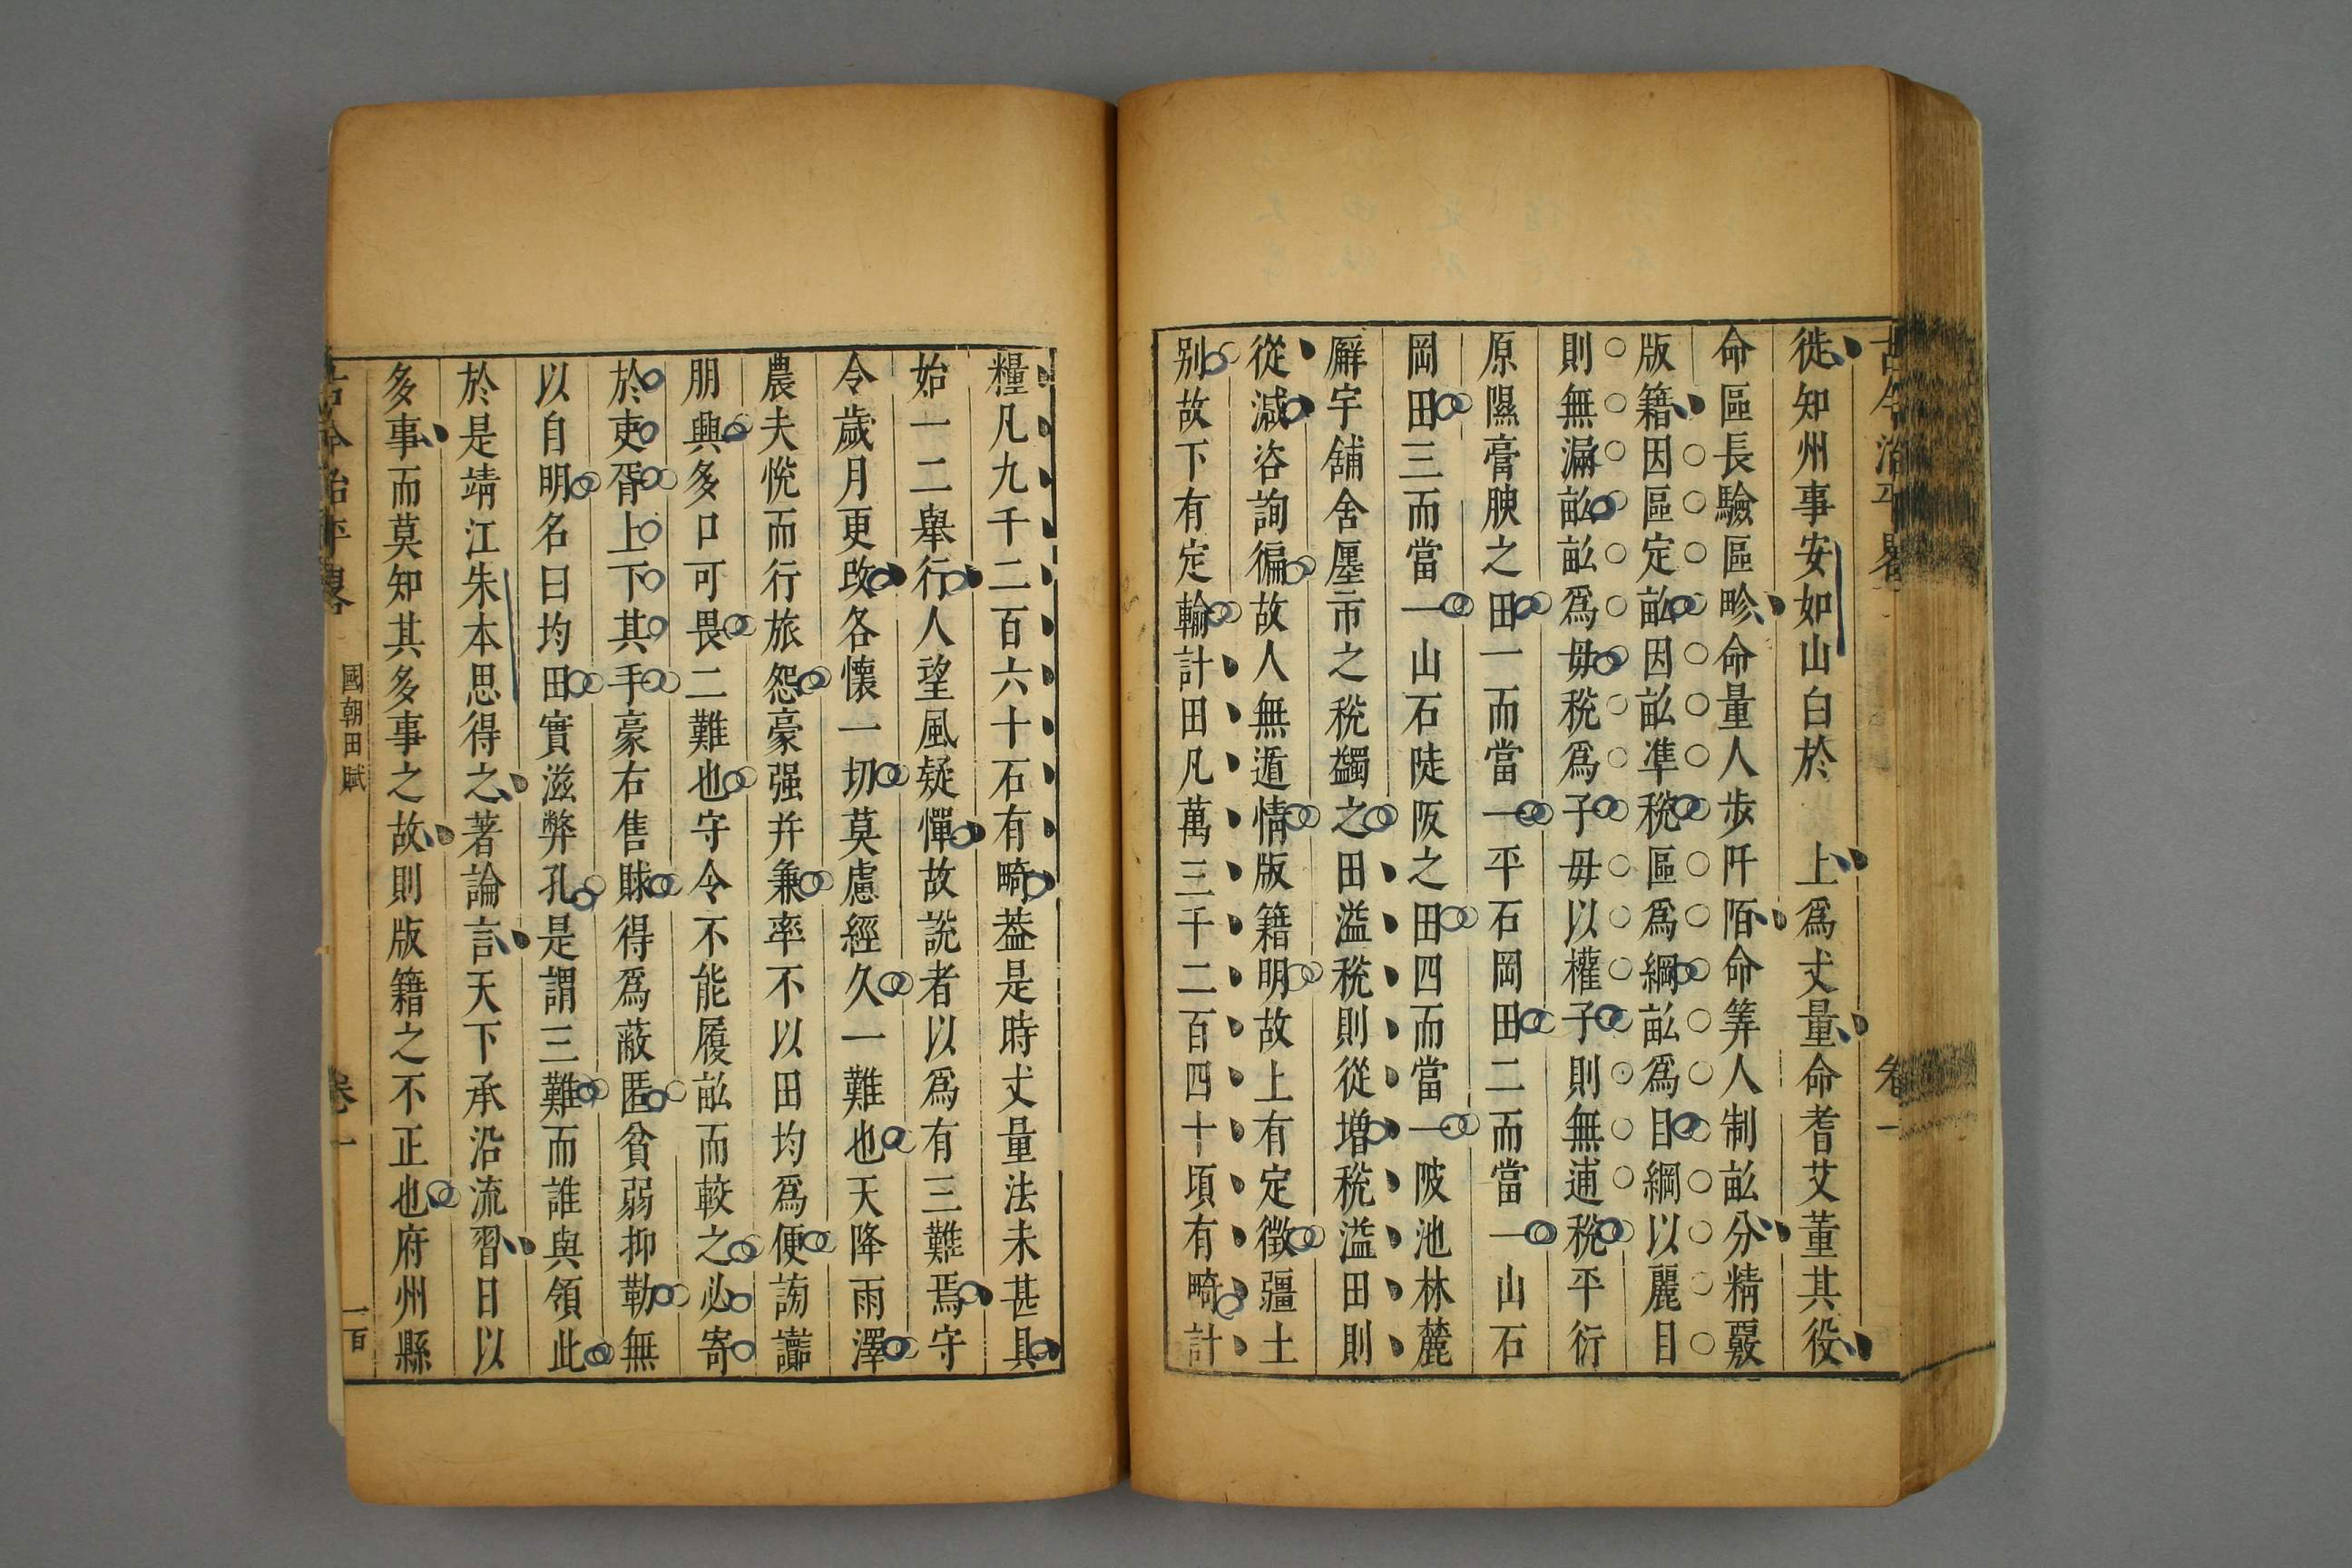 古今治平畧
卷一
徙知州事安如山白於 上爲丈量命耆艾董其役
命區長驗區畛命量人步阡陌命筭人制畝分精覈
版籍因區定畝因畝準稅區爲綱畝爲目綱以麗目
則無漏畝畝爲毋稅爲子毋以權子則無逋稅平衍
原隰膏腴之田一而當一平石岡田二而當一山石
岡田三而當一山石陡阪之田四而當一陂池林麓
廨宇舖舍廛市之稅蠲之田溢稅則從增稅溢田則
從減咨詢徧故人無遁情版籍明故上有定徵疆土
别故下有定輸計田凡萬三千二百四十頃有畸計
糧凡九千二百六十石有畸葢是時丈量法未甚具
始一二舉行人望風疑憚故說者以爲有三難焉守
令歲月更改各懷一切莫慮經久一難也天降雨澤
農夫悅而行旅怨豪强并兼率不以田均爲便謗讟
朋興多口可畏二難也守令不能履畝而較之必寄
於吏胥上下其手豪右售賕得爲蔽匿貧弱抑勒無
以自明名曰均田實滋弊孔是謂三難而誰與領此
於是靖江朱本思得之著論言天下承沿流習日以
多事而莫知其多事之故則版籍之不正也府州縣
古今治平畧
國朝田賦
卷一
一百